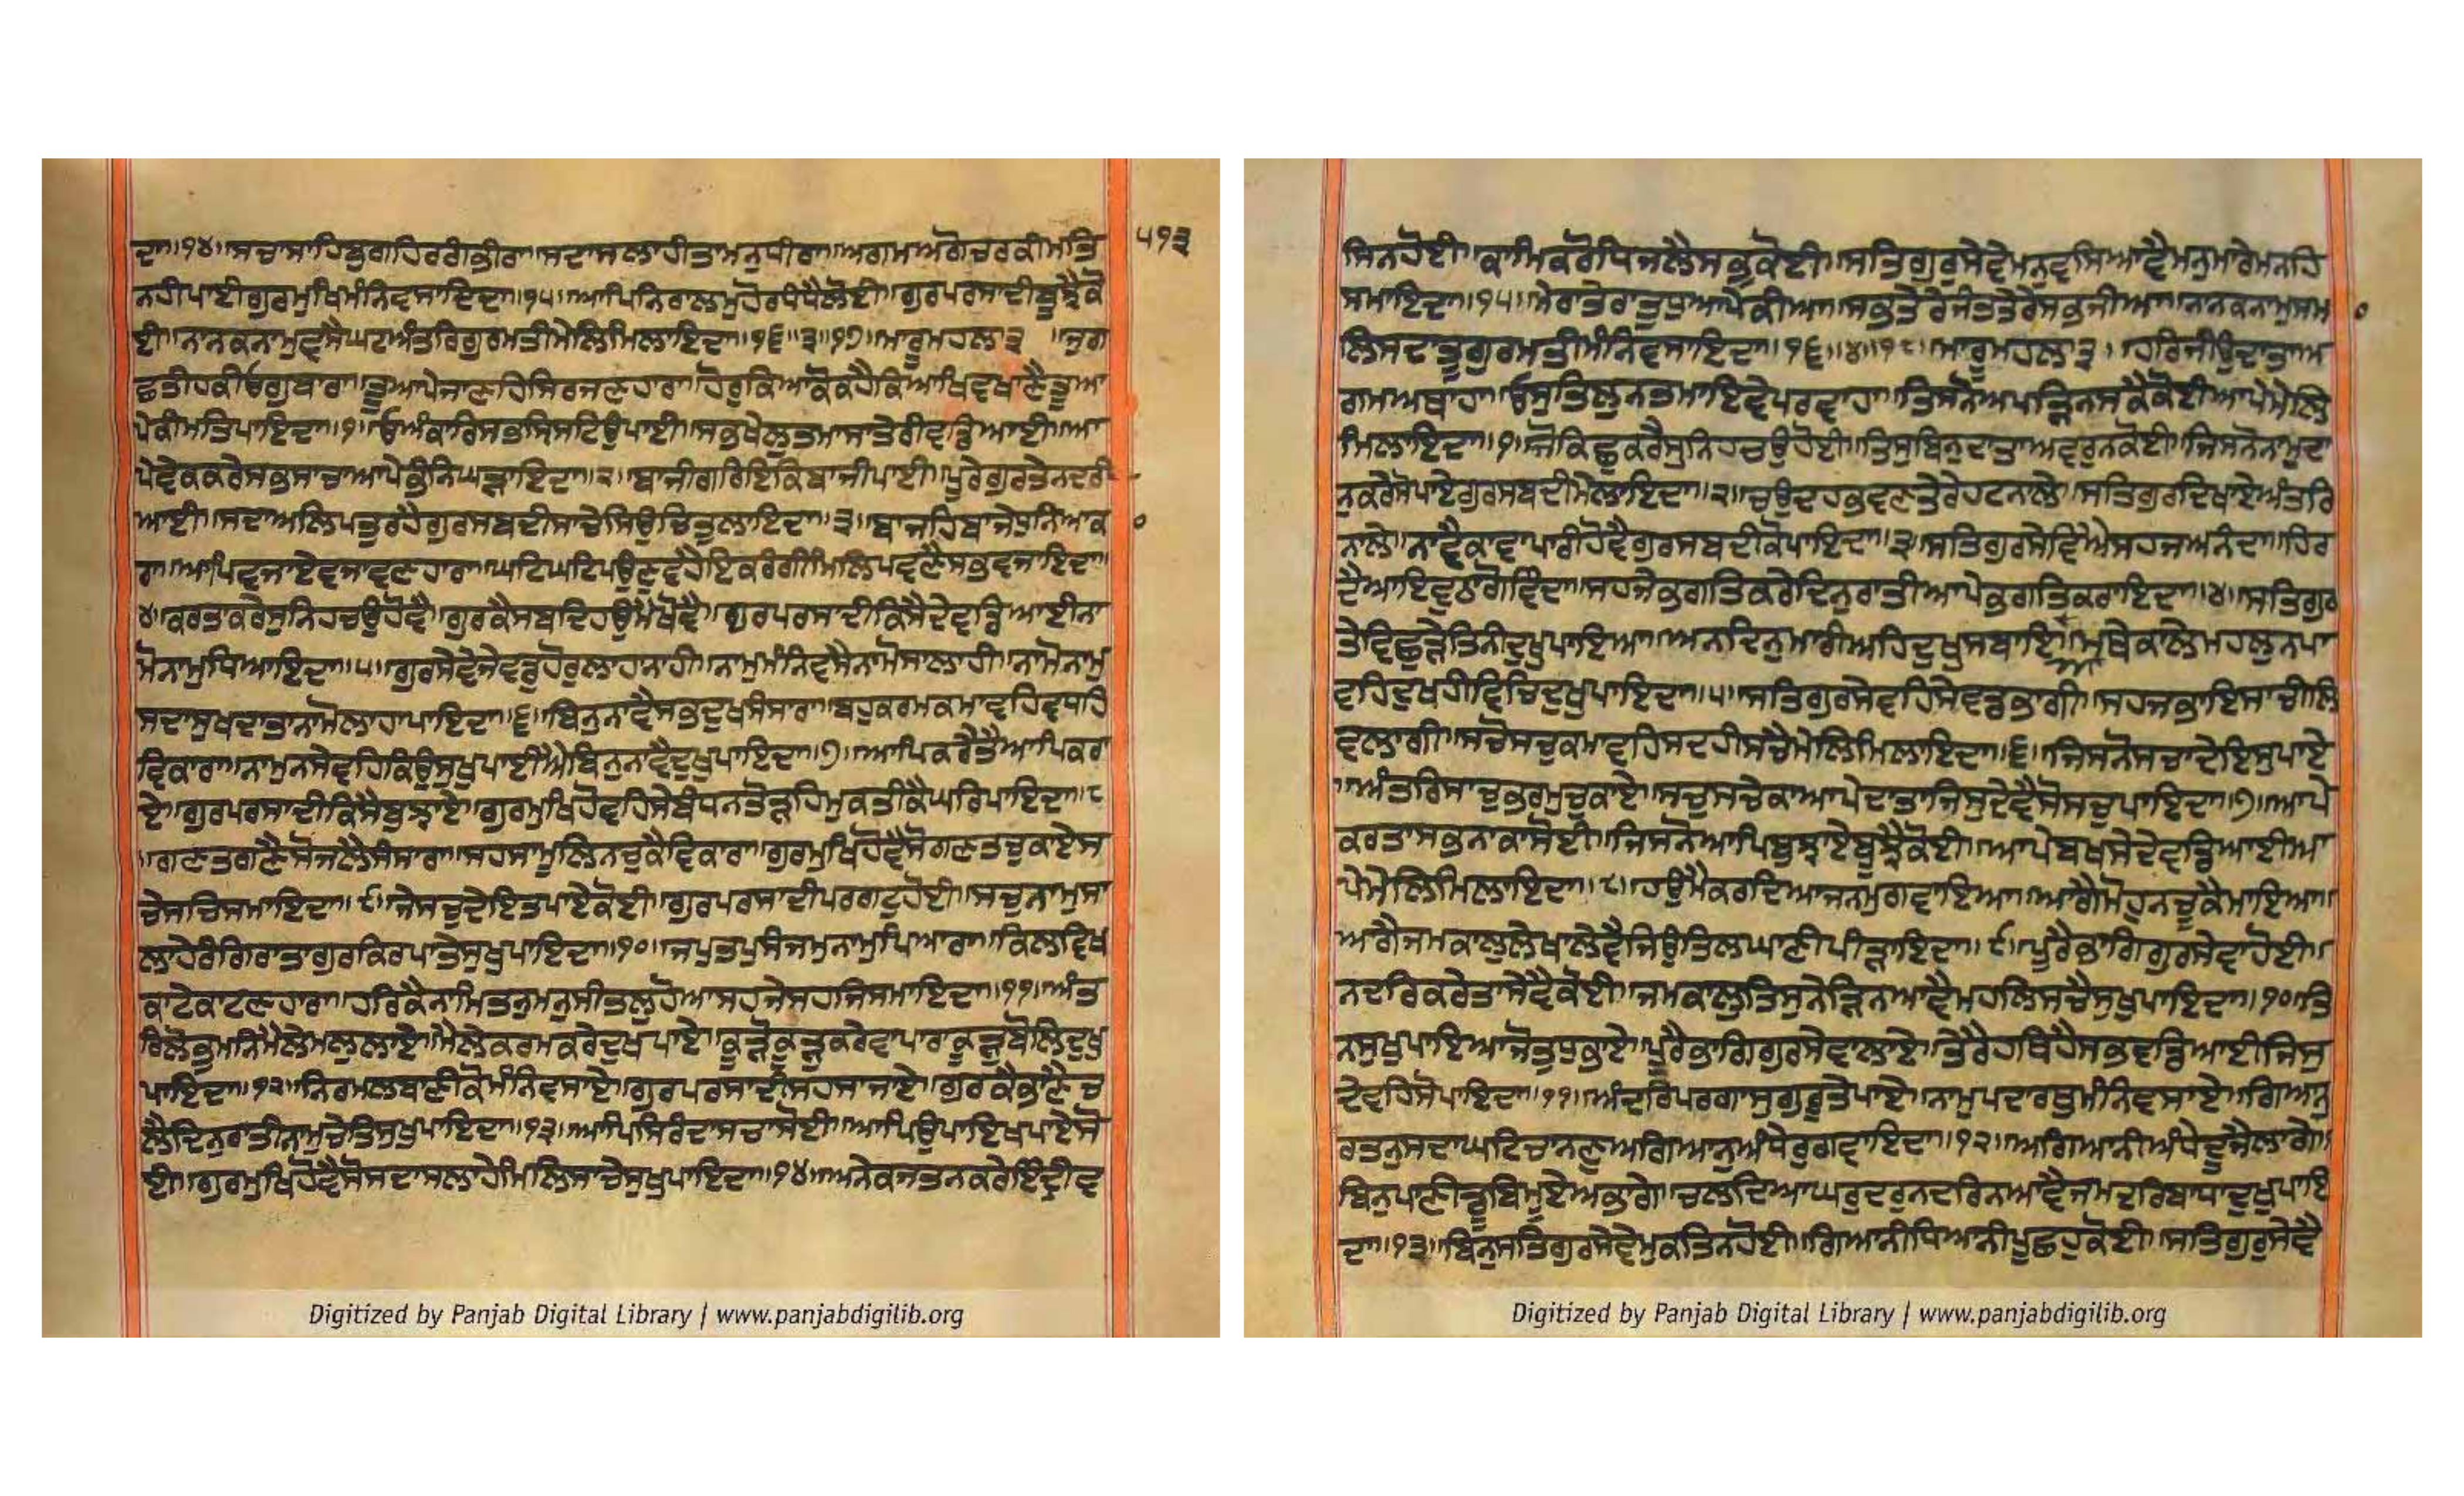 ਦਾ॥੧੪॥ਸਚਾਸਾਹਿਬੁਗਹਿਰਗੰਭੀਰਾ॥ਸਦਾਸਲਾਹੀਤਾਮਨੁਧੀਰਾ॥ਅਗਮਅਗੋਚਰਕੀਮਤਿ
੫੧੩
ਨਹੀਪਾਈਗੁਰਮੁਖਿਮੰਨਿਵਸਾਇਦਾ॥੧੫॥ਆਪਿਨਿਰਾਲਮੁਹੋਰਧੰਧੈਲੋਈ॥ਗੁਰਪਰਸਾਦੀਬੂਝੈਕੋ
ਈ॥ਨਾਨਕਨਾਮੁਵਸੈਘਟਅੰਤਰਿਗੁਰਮਤੀਮੇਲਿਮਿਲਾਇਦਾ॥੧੬॥੩॥੧੭॥ਮਾਰੂਮਹਲਾ੩ ॥ਜੁਗ
ਛਤੀਹਕੀਓਗੁਬਾਰਾ॥ਤੂਆਪੇਜਾਣਹਿਸਿਰਜਣਹਾਰਾ॥ਹੋਰੁਕਿਆਕੋਕਹੈਕਿਆਖਿਵਖਾਣੈਤੂਆ
ਪੇਕੀਮਤਿਪਾਇਦਾ॥੧॥ਓਅੰਕਾਰਿਸਭਸ੍ਰਿਸਟਿਉਪਾਈ॥ਸਭੁਖੇਲੁਤਮਾਸਾਤੇਰੀਵਡਿਆਈ॥ਆ
ਪੇਵੇਕਕਰੇਸਭੁਸਾਚਾਆਪੇਭੰਨਿਘੜਾਇਦਾ॥੨॥ਬਾਜੀਗਰਿਇਕਿਬਾਜੀਪਾਈ॥ਪੂਰੇਗੁਰਤੇਨਦਰੀ
ਆਈ॥ਸਦਾਅਲਿਪਤੁਰਹੈਗੁਰਸਬਦੀਸਾਚੇਸਿਉਚਿਤੁਲਾਇਦਾ॥੩॥ਬਾਜਹਿਬਾਜੇਧੁਨਿਆਕਾ ੦
ਰਾ॥ਆਪਿਵਜਾਏਵਜਾਵਣਹਾਰਾ॥ਘਟਿਘਟਿਪਉਣੁਵਹੈਇਕਰੰਗੀਮਿਲਿਪਵਣੈਸਭਵਜਾਇਦਾ॥
੪॥ਕਰਤਾਕਰੇਸੁਨਿਹਚਉਹੋਵੈ॥ਗੁਰਕੈਸਬਦਿਹਉਮੈਖੋਵੈ॥ਗੁਰਪਰਸਾਦੀਕਿਸੈਦੇਵਡਿਆਈਨਾ
ਮੋਨਾਮੁਧਿਆਇਦਾ॥੫॥ਗੁਰਸੇਵੇਜੇਵਡੁਹੋਰੁਲਾਹਾਨਾਹੀ॥ਨਾਮੁਮੰਨਿਵਸੈਨਾਮੋਸਾਲਾਹੀ॥ਨਾਮੋਨਾਮੁ
ਸਦਾਸੁਖਦਾਤਾਨਾਮੋਲਾਹਾਪਾਇਦਾ॥੬॥ਬਿਨੁਨਾਵੈਸਭਦੁਖੁਸੰਸਾਰਾ॥ਬਹੁਕਰਮਕਮਾਵਹਿਵਧਹਿ
ਵਿਕਾਰਾ॥ਨਾਮੁਨਸੇਵਹਿਕਿਉਸੁਖੁਪਾਈਐਬਿਨੁਨਾਵੈਦੁਖੁਪਾਇਦਾ॥੭॥ਆਪਿਕਰੇਤੈਆਪਿਕਰਾ
ਏ॥ਗੁਰਪਰਸਾਦੀਕਿਸੈਬੁਝਾਏ॥ਗੁਰਮੁਖਿਹੋਵਹਿਸੇਬੰਧਨਤੋੜਹਿਮੁਕਤੀਕੈਘਰਿਪਾਇਦਾ॥੮
॥ਗਣਤਗਣੈਸੋਜਲੈਸੰਸਾਰਾ॥ਸਹਸਾਮੂਲਿਨਚੁਕੈਵਿਕਾਰਾ॥ਗੁਰਮੁਖਿਹੋਵੈਸੋਗਣਤਚੁਕਾਏਸ
ਚੇਸਚਿਸਮਾਇਦਾ॥੯॥ਜੇਸਚੁਦੇਇਤਪਾਏਕੋਈ॥ਗੁਰਪਰਸਾਦੀਪਰਗਟੁਹੋਈ॥ਸਚੁਨਾਮੁਸਾ
ਲਾਹੇਰੰਗਿਰਾਤਾਗੁਰਕਿਰਪਾਤੇਸੁਖੁਪਾਇਦਾ॥੧੦॥ਜਪੁਤਪੁਸੰਜਮੁਨਾਮੁਪਿਆਰਾ॥ਕਿਲਵਿਖ
ਕਾਟੇਕਾਟਣਹਾਰਾ॥ਹਰਿਕੈਨਾਮਿਤਨੁਮਨੁਸੀਤਲੁਹੋਆਸਹਜੇਸਹਜਿਸਮਾਇਦਾ॥੧੧॥ਅੰਤ
ਰਿਲੋਭੁਮਨਿਮੈਲੈਮਲੁਲਾਏ॥ਮੈਲੇਕਰਮਕਰੇਦੁਖੁਪਾਏ॥ਕੂੜੋਕੂੜੁਕਰੇਵਾਪਾਰਾਕੂੜੁਬੋਲਿਦੁਖੁ
ਪਾਇਦਾ॥੧੨॥ਨਿਰਮਲਬਾਣੀਕੋਮੰਨਿਵਸਾਏ॥ਗੁਰਪਰਸਾਦੀਸਹਸਾਜਾਏ॥ਗੁਰਕੈਭਾਣੈਚ
ਲੈਦਿਨੁਰਾਤੀਨਾਮੁਚੇਤਿਸੁਖੁਪਾਇਦਾ॥੧੩॥ਆਪਿਸਿਰੰਦਾਸਚਾਸੋਈ॥ਆਪਿਉਪਾਇਖਪਾਏਸੋ
ਈ॥ਗੁਰਮੁਖਿਹੋਵੈਸੋਸਦਾਸਲਾਹੇਮਿਲਿਸਾਚੇਸੁਖੁਪਾਇਦਾ॥੧੪॥ਅਨੇਕਜਤਨਕਰੇਇੰਦ੍ਰੀਵ
Digitized by Panjab Digital Library | www.panjabdigilib.org
ਸਿਨਹੋਈ॥ਕਾਮਿਕਰੋਧਿਜਲੈਸਭੁਕੋਈ॥ਸਤਿਗੁਰੁਸੇਵੇਮਨੁਵਸਿਆਵੈਮਨੁਮਾਰੇਮਨਹਿ
ਸਮਾਇਦਾ॥੧੫॥ਮੇਰਾਤੇਰਾਤੁਧੁਆਪੇਕੀਆ॥ਸਭਤੇਰੇਜੰਤਤੇਰੇਸਭਜੀਆ॥ਨਨਕਨਾਮੁਸਮ ੦
ਲਿਸਦਾਤੂਗੁਰਮਤੀਮੰਨਿਵਸਾਇਦਾ॥੧੬॥੪॥੧੮॥ਮਾਰੂਮਹਲਾ੩॥ਹਰਿਜੀਉਦਾਤਾਅ
ਗਮਅਥਾਹਾ॥ਓਸੁਤਿਲੁਨਤਮਾਇਵੇਪਰਵਾਹਾ॥ਤਿਸਨੋਅਪੜਿਨਸਕੈਕੋਈਆਪੇਮੇਲਿ
ਮਿਲਾਇਦਾ॥੧॥ਜੋਕਿਛੁਕਰੈਸੁਨਿਹਚਉਹੋਈ॥ਤਿਸੁਬਿਨੁਦਾਤਾਅਵਰੁਨਕੋਈ॥ਜਿਸਨੋਨਾਮੁਦਾ
ਨੁਕਰੇਸੋਪਾਏਗੁਰਸਬਦੀਮੇਲਾਇਦਾ॥੨॥ਚਉਦਹਭਵਣਤੇਰੇਹਟਨਾਲੇ॥ਸਤਿਗੁਰਦਿਖਾਏਅੰਤਰਿ
ਨਾਲੇ॥ਨਾਵੈਕਾਵਾਪਾਰੀਹੋਵੈਗੁਰਸਬਦੀਕੋਪਾਇਦਾ॥੩॥ਸਤਿਗੁਰਸੇਵਿਐਸਹਜਅਨੰਦਾ॥ਹਿਰ
ਦੈਆਇਵੁਠਾਗੋਵਿੰਦਾ॥ਸਹਜੇਭਗਤਿਕਰੇਦਿਨੁਰਾਤੀਆਪੇਭਗਤਿਕਰਾਇਦਾ॥੪॥ਸਤਿਗੁਰ
ਤੇਵਿਛੁੜੇਤਿਨੀਦੁਖੁਪਾਇਆ॥ਅਨਦਿਨੁਮਾਰੀਅਹਿਦੁਖੁਸਬਾਇਆ॥ਮਥੇਕਾਲੇਮਹਲੁਨਪਾ
ਵਹਿਦੁਖਹੀਵਿਚਿਦੁਖੁਪਾਇਦਾ॥੫॥ਸਤਿਗੁਰਸੇਵਹਿਸੇਵਡਭਾਗੀ॥ਸਹਜਭਾਇਸਾਚੀਲਿ
ਵਲਾਗੀ॥ਸਚੋਸਚੁਕਮਾਵਹਿਸਦਹੀਸਚੈਮੇਲਿਮਿਲਾਇਦਾ॥੬॥ਜਿਸਨੋਸਚਾਦੇਇਸੁਪਾਏ
॥ਅੰਤਰਿਸਾਚੁਭਰਮੁਚੁਕਾਏ॥ਸਚੁਸਚੇਕਾਆਪੇਦਾਤਾਜਿਸੁਦੇਵੈਸੋਸਚੁਪਾਇਦਾ॥੭॥ਆਪੇ
ਕਰਤਾਸਭਨਾਕਾਸੋਈ॥ਜਿਸਨੋਆਪਿਬੁਝਾਏਬੂਝੈਕੋਈ॥ਆਪੇਬਖਸੇਦੇਵਡਿਆਈਆ
ਪੇਮੇਲਿਮਿਲਾਇਦਾ॥੮॥ਹਉਮੈਕਰਦਿਆਜਨਮੁਗਵਾਇਆ॥ਆਗੈਮੋਹੁਨਚੂਕੈਮਾਇਆ॥
ਅਗੈਜਮਕਾਲੁਲੇਖਾਲੇਵੈਜਿਉਤਿਲਘਾਣੀਪੀੜਾਇਦਾ॥੯॥ਪੂਰੈਭਾਗਿਗੁਰਸੇਵਾਹੋਈ॥
ਨਦਰਿਕਰੇਤਾਸੇਵੈਕੋਈ॥ਜਮਕਾਲੁਤਿਸੁਨੇੜਿਨਆਵੈਮਹਲਿਸਚੈਸੁਖੁਪਾਇਦਾ॥੧੦॥ਤਿ
ਨਸੁਖੁਪਾਇਆਜੋਤੁਧੁਭਾਏ॥ਪੂਰੈਭਾਗਿਗੁਰਸੇਵਾਲਾਏ॥ਤੇਰੈਹਥਿਹੈਸਭਵਡਿਆਈਜਿਸੁ
ਦੇਵਹਿਸੋਪਾਇਦਾ॥੧੧॥ਅੰਦਰਿਪਰਗਾਸੁਗੁਰੂਤੇਪਾਏ॥ਨਾਮੁਪਦਾਰਥੁਮੰਨਿਵਸਾਏ॥ਗਿਆਨੁ
ਰਤਨੁਸਦਾਘਟਿਚਾਨਣੁਅਗਿਆਨੁਅੰਧੇਰੁਗਵਾਇਦਾ॥੧੨॥ਅਗਿਆਨੀਅੰਧੇਦੂਜੈਲਾਗੇ॥
ਬਿਨੁਪਾਣੀਡੂਬਿਮੂਏਅਭਾਗੇ॥ਚਲਦਿਆਘਰੁਦਰੁਨਦਰਿਨਆਵੈਜਮਦਰਿਬਾਧਾਦੁਖੁਪਾਇ
ਦਾ॥੧੩॥ਬਿਨੁਸਤਿਗੁਰਸੇਵੇਮੁਕਤਿਨਹੋਈ॥ਗਿਆਨੀਧਿਆਨੀਪੂਛਹੁਕੋਈ॥ਸਤਿਗੁਰੁਸੇਵੈ
Digitized by Panjab Digital Library | www.panjabdigilib.org